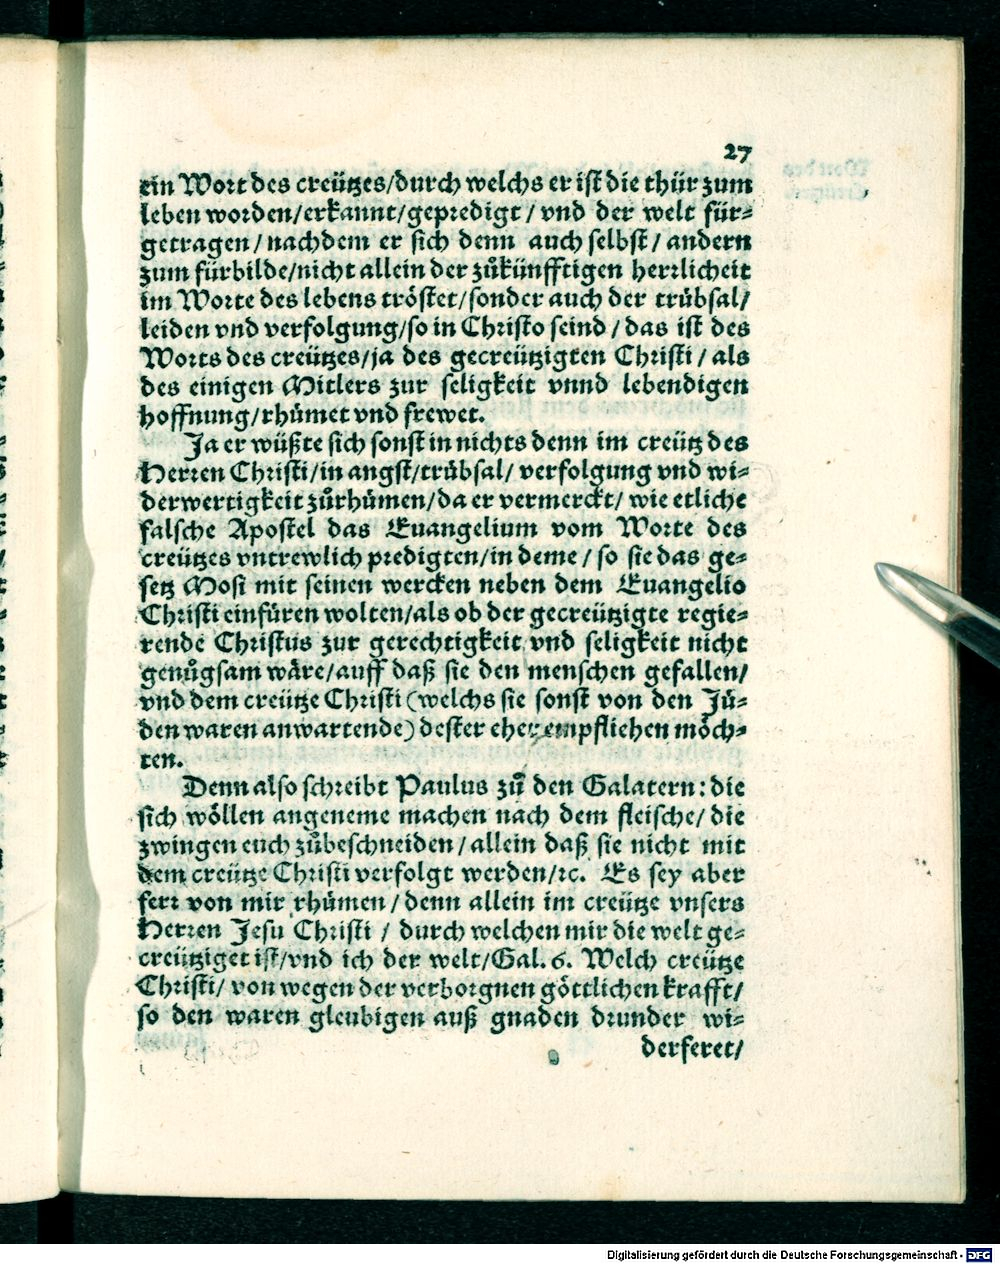 27
ein Wort des creützes/durch welchs er ist die thür zum
leben worden/erkannt/gepredigt/ vnd der welt für-
getragen/ nachdem er sich denn auch selbst/ andern
zum fürbilde/nicht allein der zůkünfftigen herrlicheit
im Worte des lebens tröstet/sonder auch der trübsal/
leiden vnd verfolgung/so in Christo seind/ das ist des
Worts des creützes/ja des gecreützigten Christi/ als
des einigen Mitlers zur seligkeit vnnd lebendigen
hoffnung/rhümet vnd frewet.
Ja er wüßte sich sonst in nichts denn im creütz des
Herren Christi/in angst/trübsal/ verfolgung vnd wi-
derwertigkeit zůrhümen/da er vermerckt/ wie etliche
falsche Apostel das Euangelium vom Worte des
creützes vntrewlich predigten/in deme/ so sie das ge-
setz Mosi mit seinen wercken neben dem Euangelio
Christi einfüren wolten/als ob der gecreützigte regie-
rende Christus zur gerechtigkeit vnd seligkeit nicht
genůgsam wäre/auff daß sie den menschen gefallen/
vnd dem creütze Christi (welchs sie sonst von den Jü-
den waren anwartende) dester eher empfliehen möch-
ten.
Denn also schreibt Paulus zů den Galatern: die
sich wöllen angeneme machen nach dem fleische/ die
zwingen euch zůbeschneiden/ allein daß sie nicht mit
dem creütze Christi verfolgt werden/ꝛc. Es sey aber
ferr von mir rhümen/ denn allein im creütze vnsers
Herren Jesu Christi/ durch welchen mir die welt ge-
creütziget ist/vnd ich der welt/Gal. 6. Welch creütze
Christi/ von wegen der verborgnen göttlichen krafft/
so den waren gleubigen auß gnaden drunder wi-
derferet/
Digitalisierung gefördert durch die Deutsche Forschungsgemeinschaft - DFG